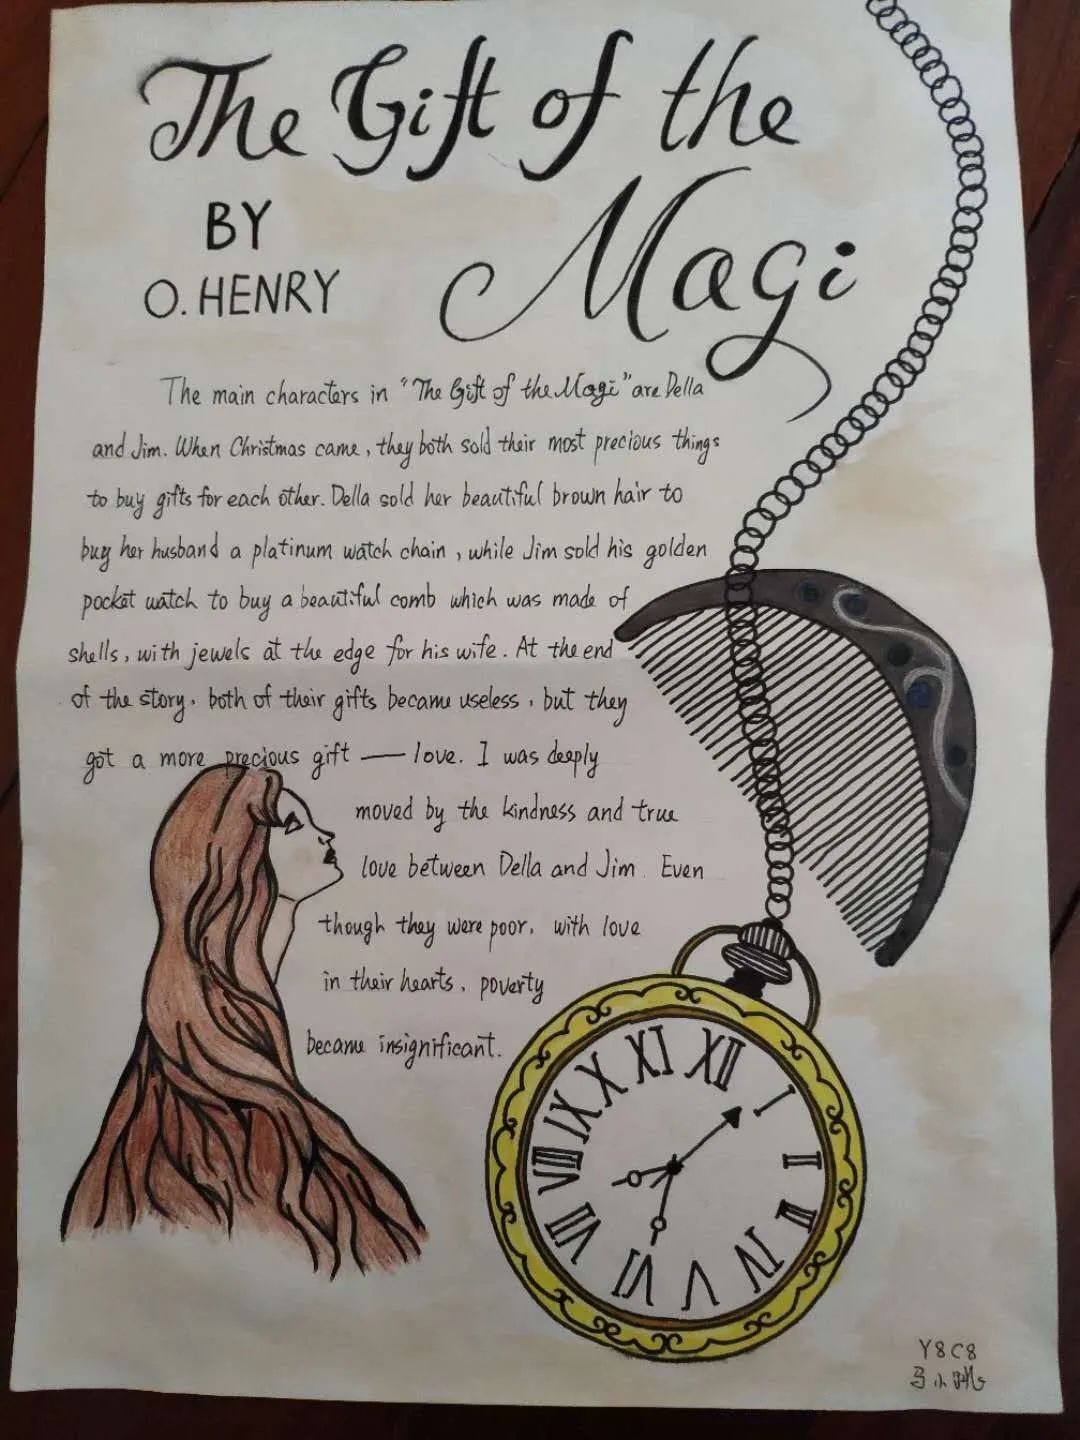 The Gift of the
Magi
BY
O. HENRY
The main characters in "The Gift of the Magi" are Della
and Jim. When Christmas came, they both sold their most precious things
to buy gifts for each other. Della sold her beautiful brown hair to
buy her husband a platinum watch chain, while Jim sold his golden
pocket watch to buy a beautiful comb which was made of
shells, with jewels at the edge for his wife. At the end
of the story, both of their gifts became useless, but they
got a more precious gift — love. I was deeply
moved by the kindness and true
love between Della and Jim. Even
though they were poor, with love
in their hearts, poverty
became insignificant.
XII
I
II
III
IV
V
VI
VII
VIII
IX
X
XI
Y8C8
马小